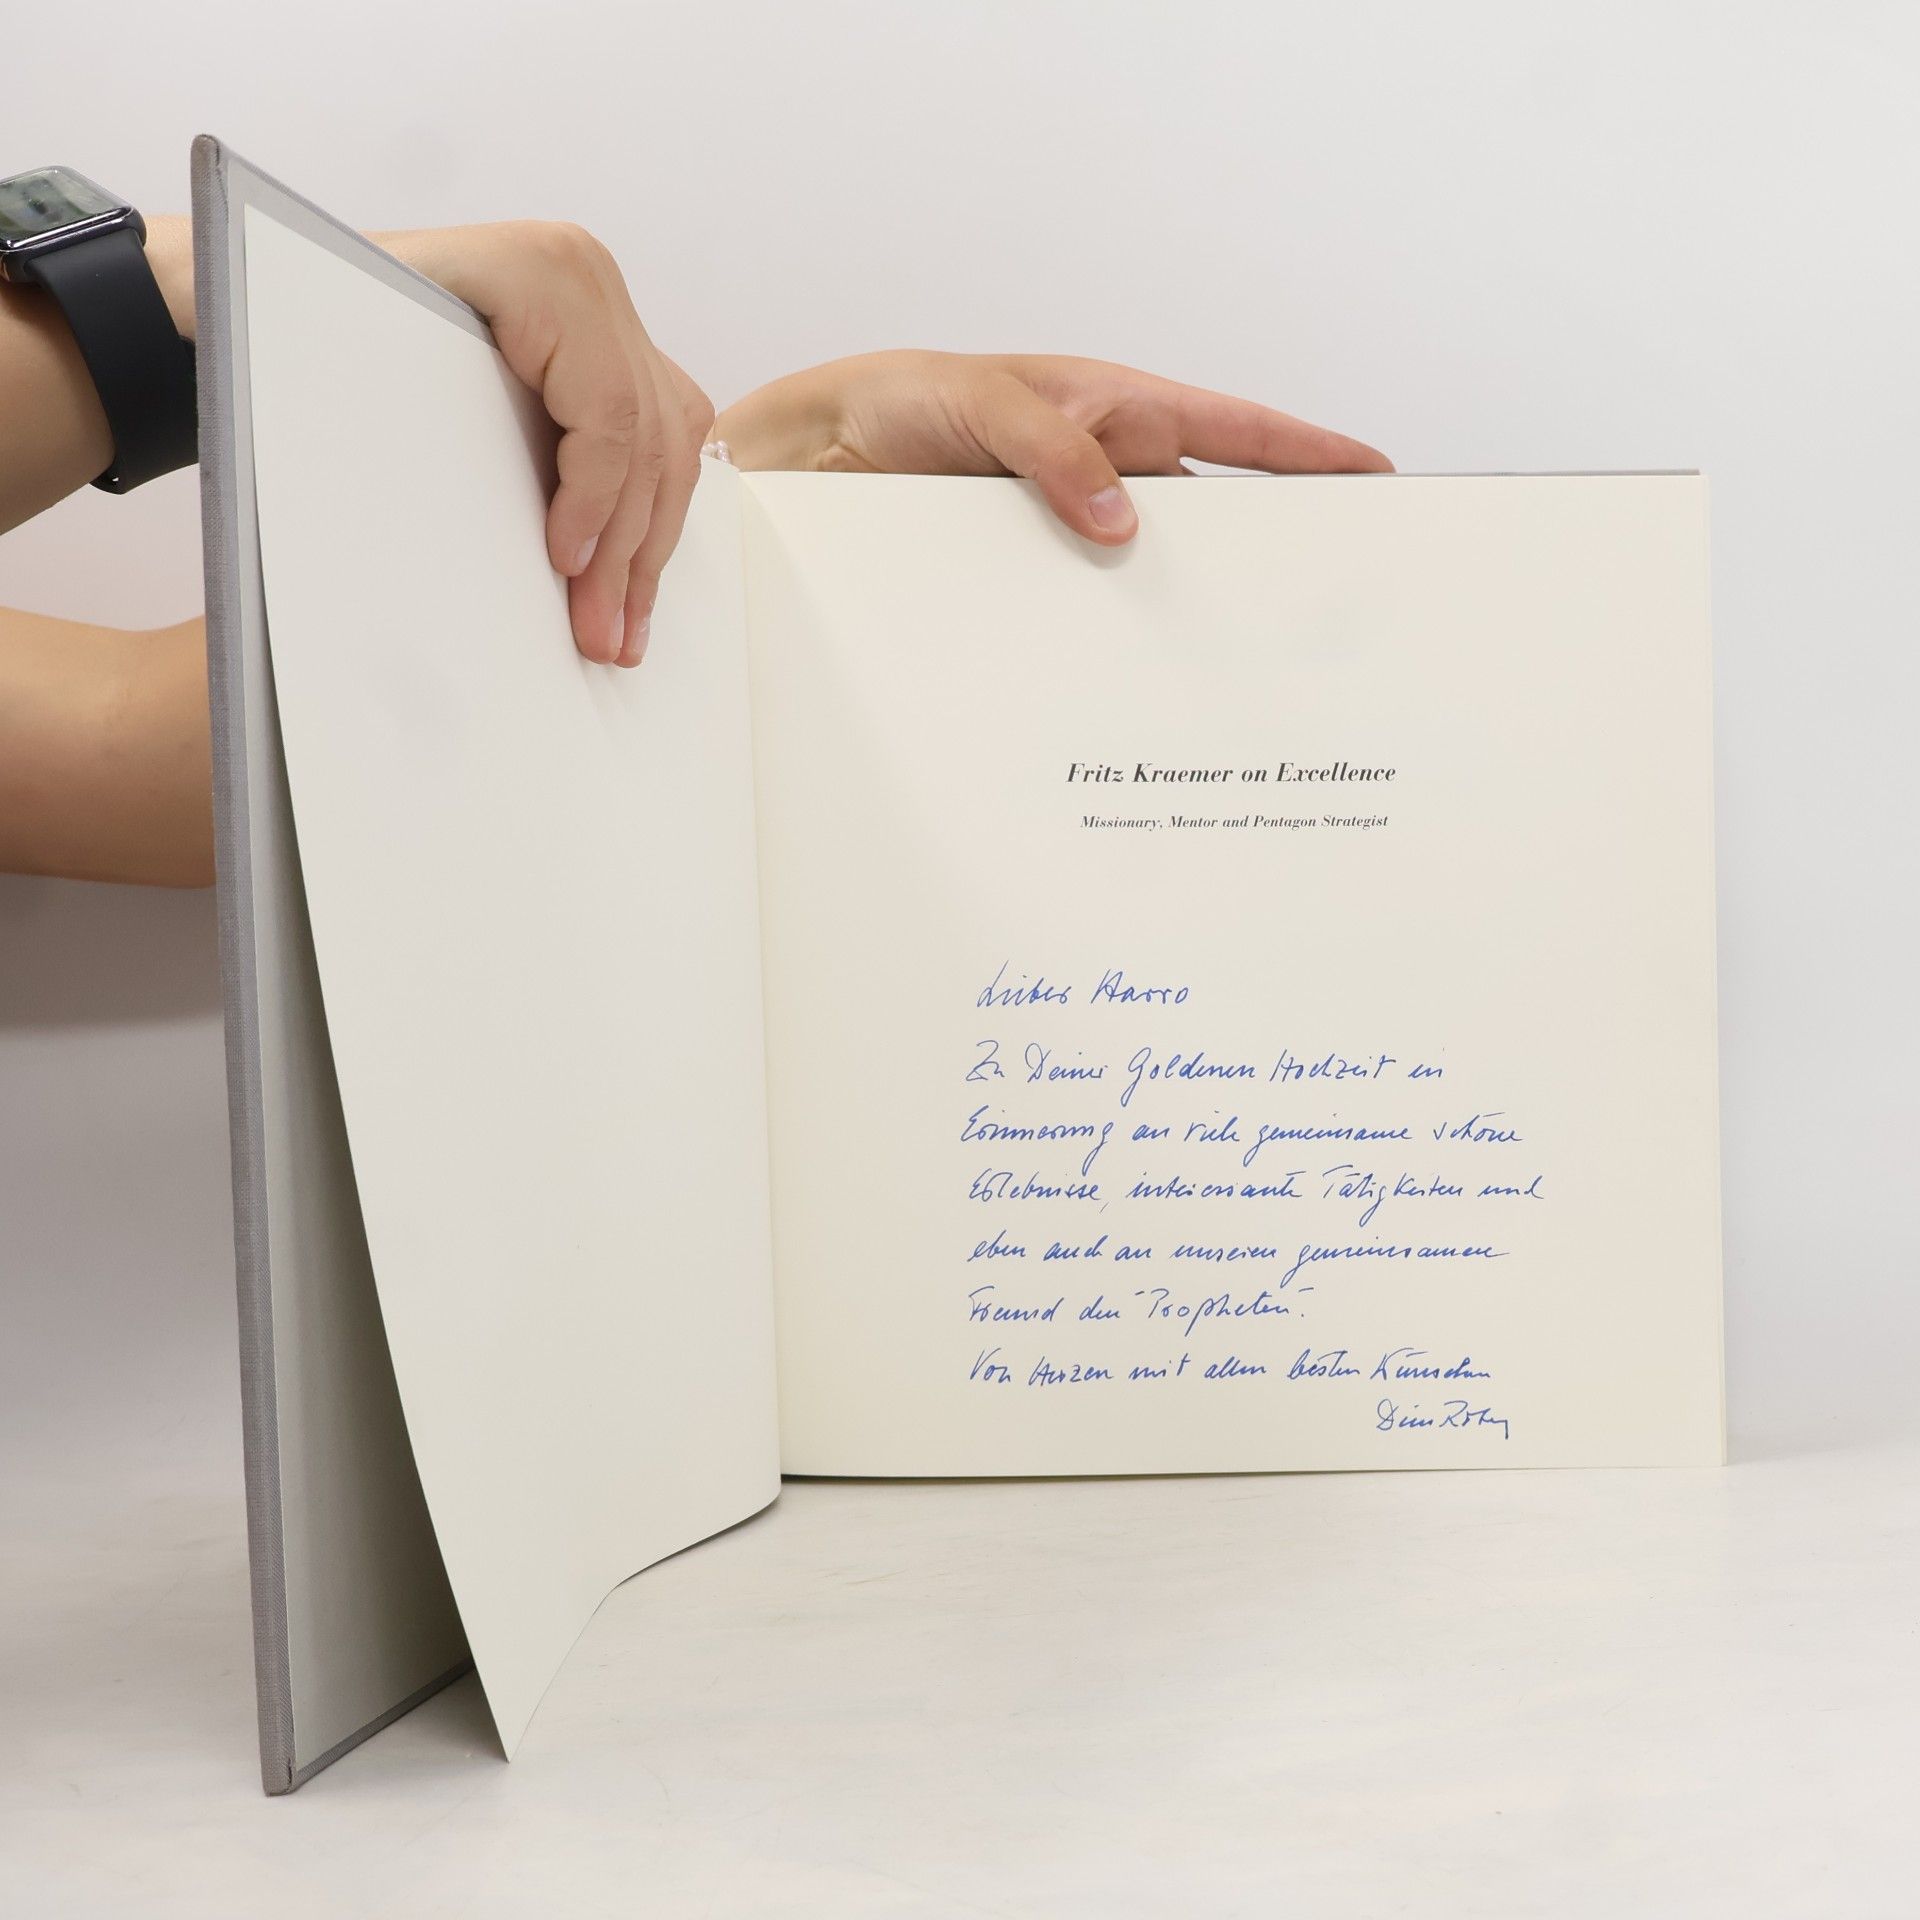 Fritz Kraemer on Excellence
Missionary, Mentor and Pentagon Strategist
Lieber Harro
Zu Deiner Goldenen Hochzeit in
Erinnerung an viele gemeinsame schöne
Erlebnisse, interessante Tätigkeiten und
eben auch an unseren gemeinsamen
Freund den "Propheten".
Von Herzen mit allen besten Wünschen
Dein